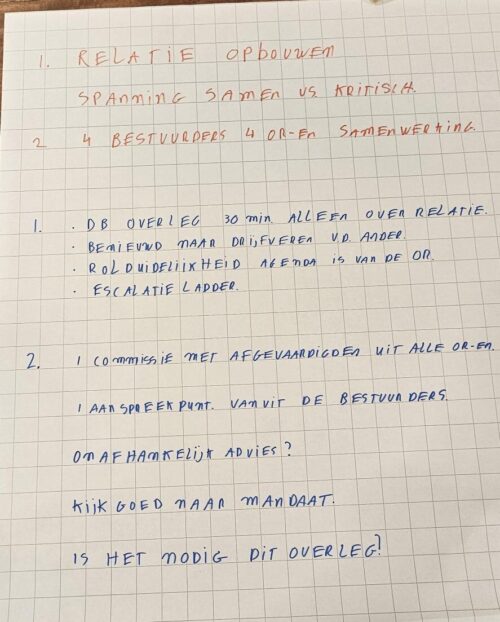 1. RELATIE OPBOUWEN
SPANNING SAMEN VS KRITISCH.
2 4 BESTUURDERS 4 OR-EN SAMENWERKING.
1. · DB OVERLEG 30 min ALLEEN OVER RELATIE.
· BENIEUWD NAAR DRIJFVEREN V.D. ANDER.
· ROLDUIDELIJKHEID AGENDA IS VAN DE OR.
· ESCALATIE LADDER.
2. 1 COMMISSIE MET AFGEVAARDIGDEN UIT ALLE OR-EN.
1 AANSPREEKPUNT. VANUIT DE BESTUURDERS.
ONAFHANKELIJK ADVIES?
KIJK GOED NAAR MANDAAT.
IS HET NODIG DIT OVERLEG?